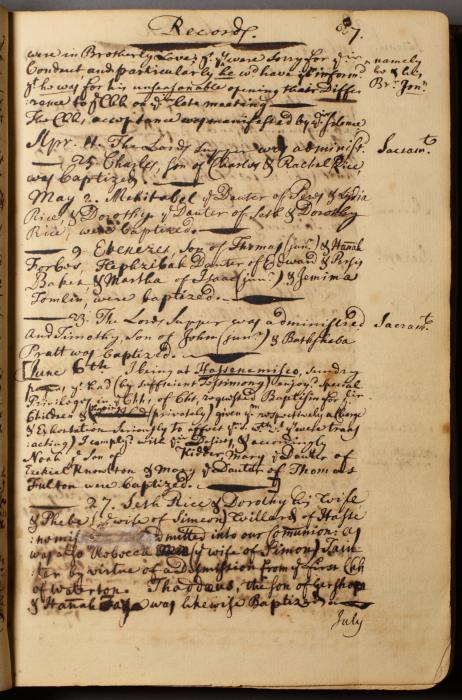 Records.
87.
were in Brotherly Love; yt yy were sorry for yir
namely
Conduct and particularly he wd have it inform'd
he & his
yt he was for his unseasonable opening that Diffe
Br: Jonn
-rence to ye Chh on ye late meeting.
The Chhs acceptance was manifested by yir silence
Apr. 11. The Lords Supper was administ.
Sacramt
25 Charles, Son of Charles & Rachel Rice,
was baptized.
May 2. Mehitabel ye Dauter of Perez & Lydia
Rice, & Dorothy ye Dauter of Seth & Dorothy
Rice, were baptized.
9. Ebenezer, Son of Thomas (junr) & Hanah
Forbes, Hephzibah Dauter of Edward & Persis
Baker & Martha of Isaac (junr) & Jemima
Tomlin, were baptized.
23. The Lords Supper was administered
Sacramt
and Timothy, Son of John (junr) & Bathsheba
Pratt was baptized.
June 6th I being at Hassenemisco, sundry
yt had (by sufficient Testimony) enjoy'd special
Priviledges in ye Chhs, of Cht, requested Baptism for yir
Children & (privately) given ym respectively a Charge
& Exhortation seriously to affect ym wth wt yy were trans
acting) I complyd with yir Desires, & accordingly
Noah ye Son of Kidder Mary ye Dauter of
Ezekiel Knowlton & Mary ye Dauter of Thomas
Fulton were baptized.
27. Seth Rice & Dorothy his Wife
& Phebe (ye wife of Simeon) Willard of Hasse
nemis dmitted into our Comunion: as
was also Rebecca (ye wife of Simon) Tain
ter by virtue of a Dismission from ye first Chh
of Waterton. Thaddeus, the son of Gershom
& Hanah was likewise Baptized.
July